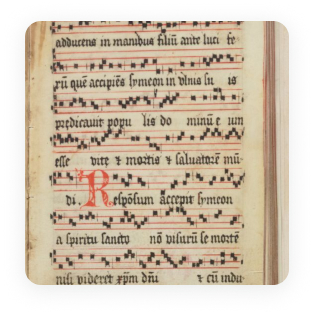 adducens in manibus filiū ante luci fe
rū quē accipiēs symeon in vlnis su is
predicauit popu lis do minū e um
esse vite ⁊ mortis ⁊ saluatorē mū-
di . Respōsum accepit symeon
a spiritu sancto nō visurū se mortē
nisi videret xp̄m dn̄i ⁊ cū indu-